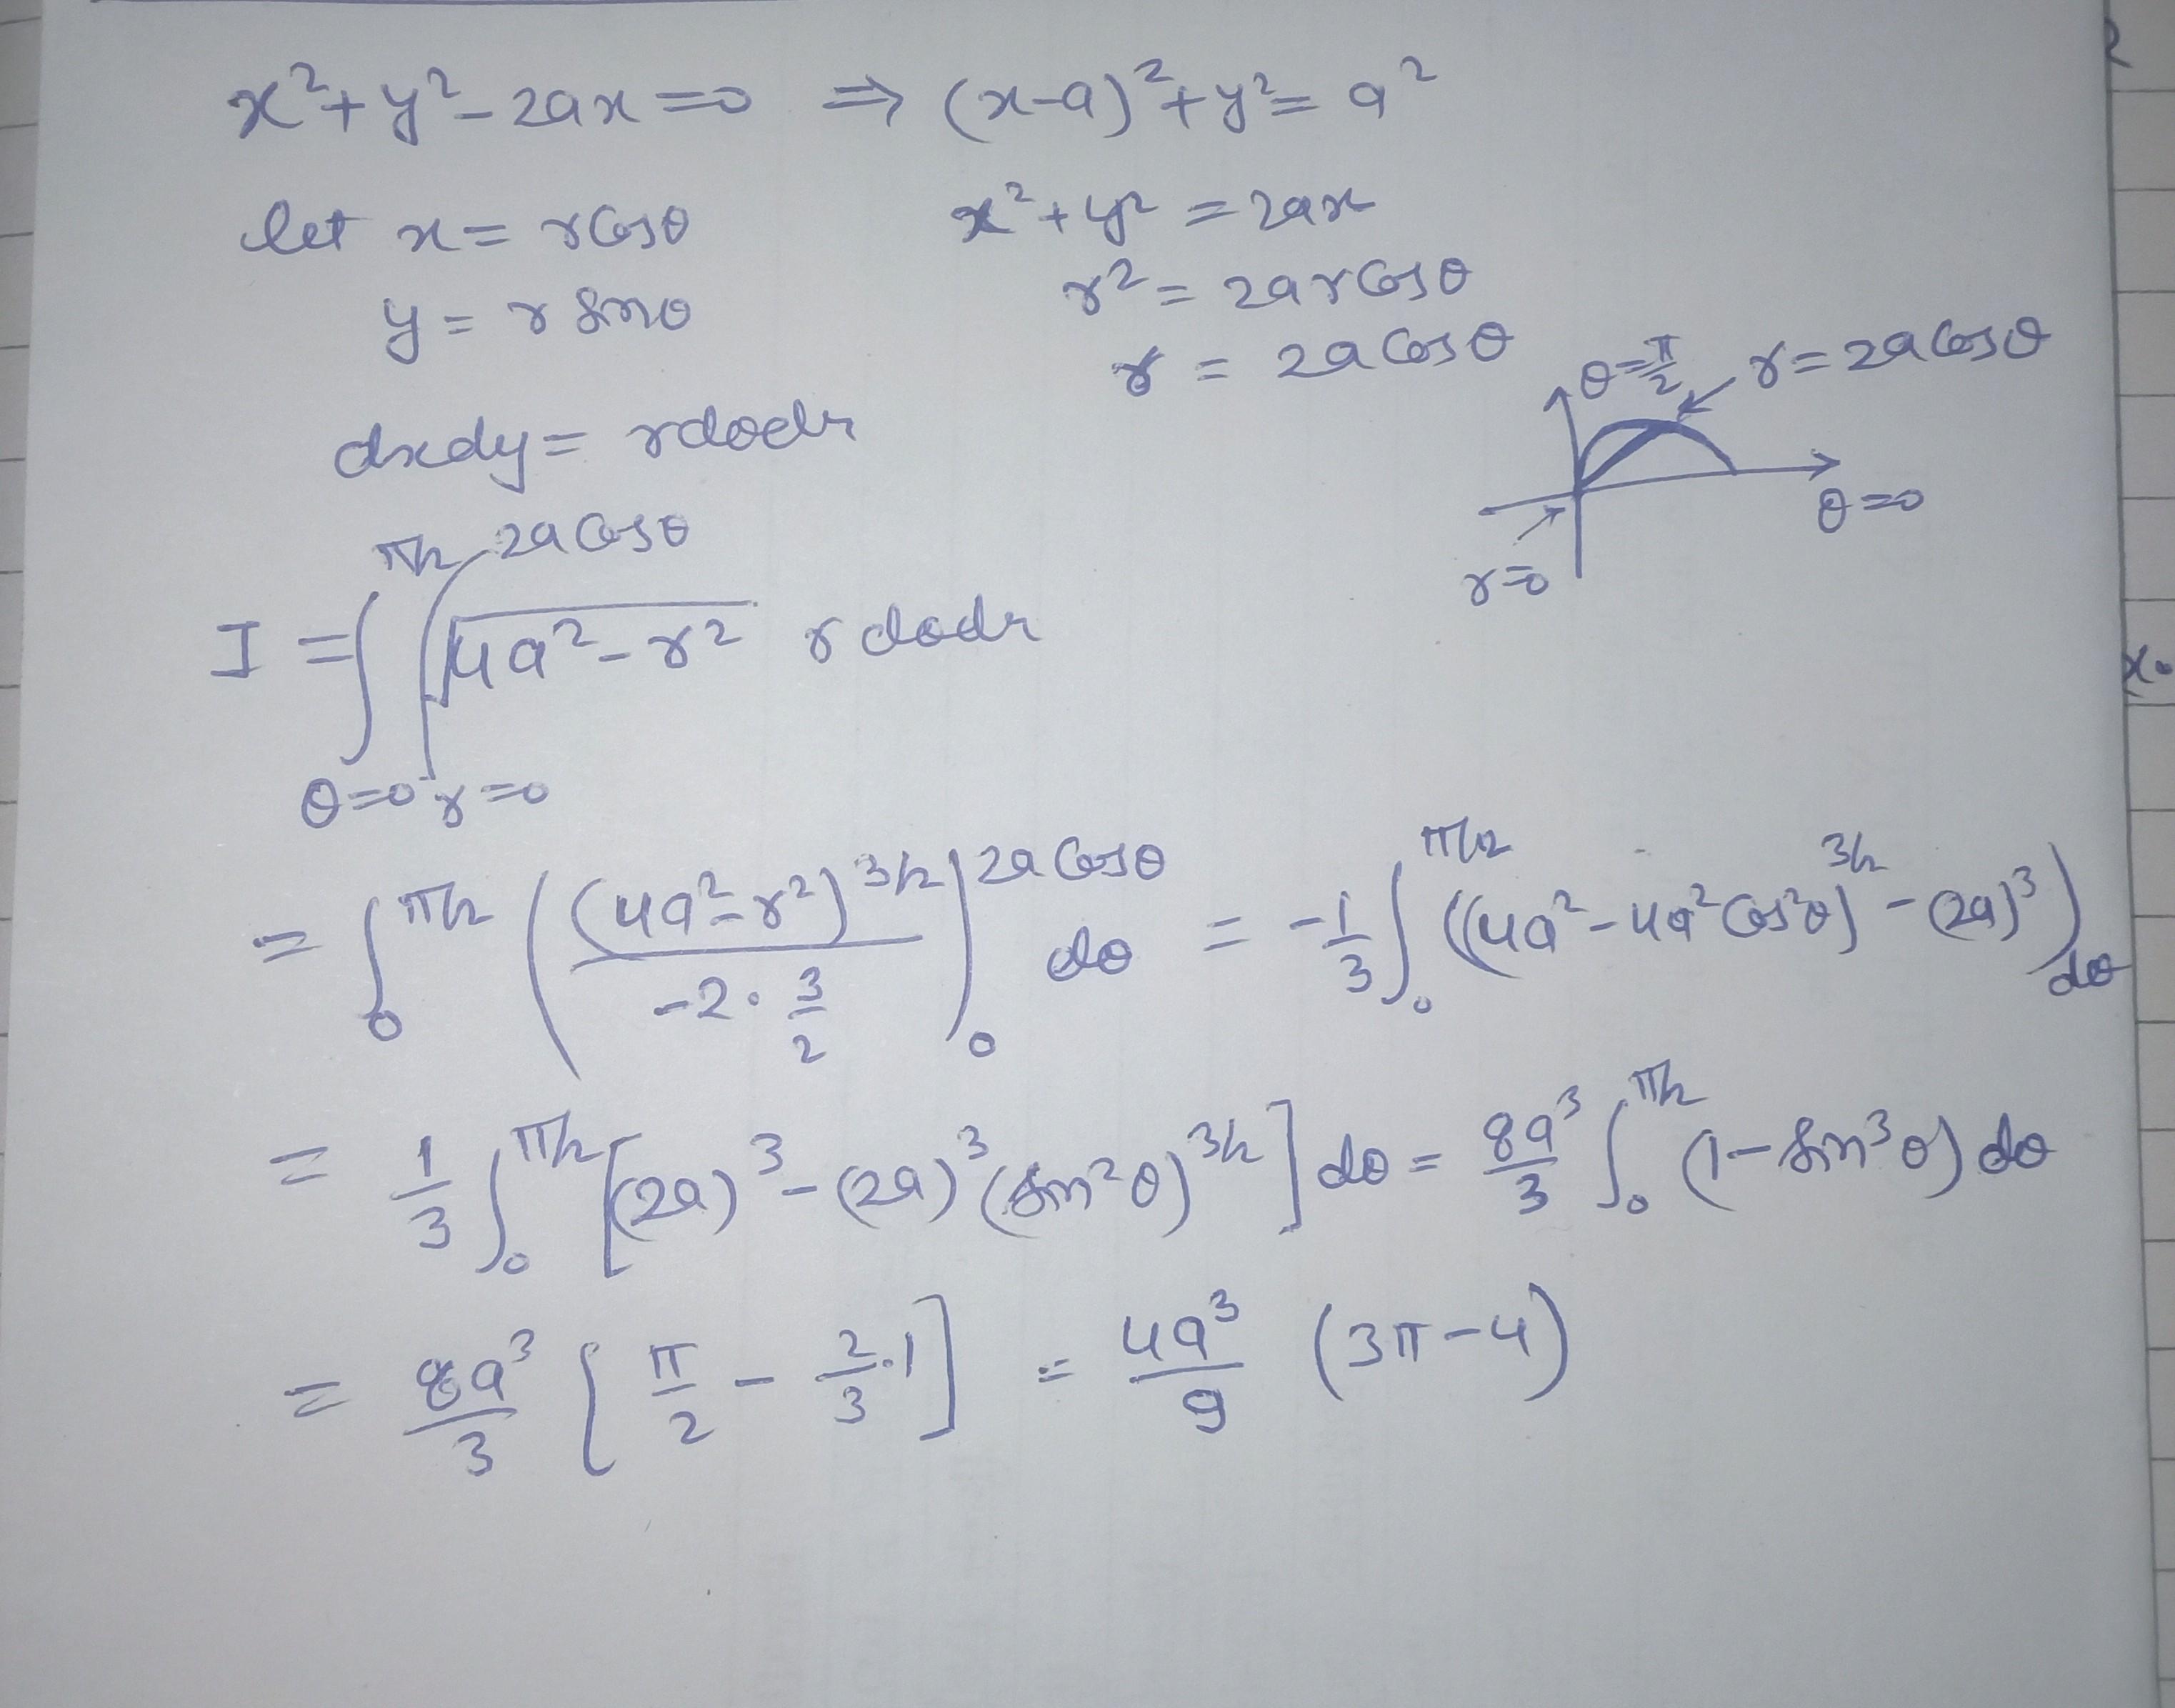 x²+y²-2ax=0 ⇒ (x-a)²+y²=a²
let x=rcosθ
x²+y²=2ax
y=r sinθ
r²=2arcosθ
r=2acosθ
θ=π/2
r=2acosθ
dxdy=rdθdr
θ=0
r=0
I=∫_{θ=0}^{π/2} ∫_{r=0}^{2acosθ} √(4a²-r²) rdθdr
=∫₀^{π/2} ((4a²-r²)^{3/2}/(-2·3/2))₀^{2acosθ} dθ = -1/3∫₀^{π/2} ((4a²-4a²cos²θ)^{3/2}-(2a)³)dθ
=1/3∫₀^{π/2} [(2a)³-(2a)³(sin²θ)^{3/2}]dθ = 8a³/3 ∫₀^{π/2} (1-sin³θ)dθ
=8a³/3 [π/2-2/3·1] = 4a³/9 (3π-4)